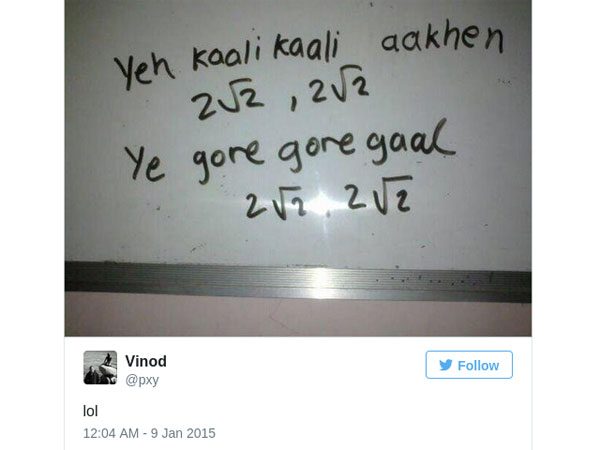 Yeh kaali kaali aakhen
2√2 , 2√2
Ye gore gore gaal
2√2 , 2√2
Vinod
@pxy
Follow
lol
12:04 AM - 9 Jan 2015